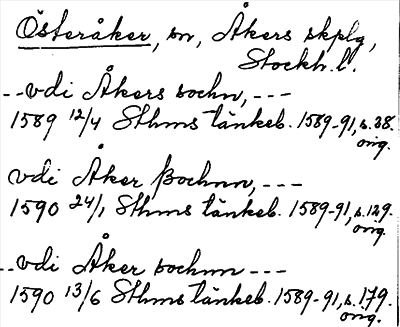 Österåker, sn, Åkers skplg,
Stockh. l.
--vdi Åkers sochn, ---
1589 12/4 Sthms tänkeb. 1589-91, s. 38.
orig.
vdi Åker Sochnn, ---
1590 24/1 Sthms tänkeb. 1589-91, s. 129.
orig.
--vdi Åker sochnn ---
1590 13/6 Sthms tänkeb. 1589-91, s. 179.
orig.